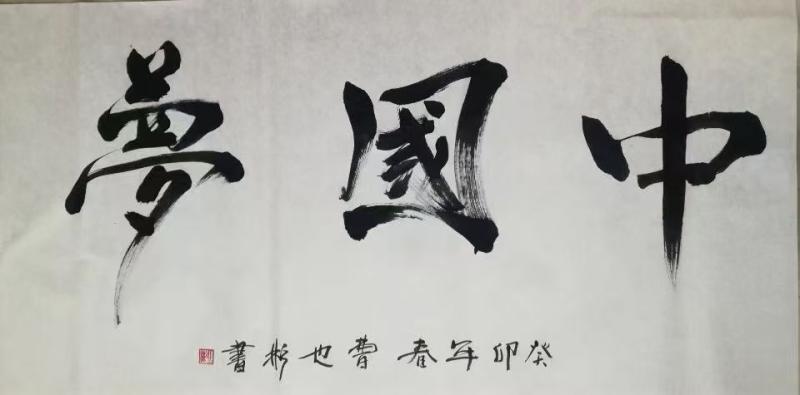 中國夢
癸卯年春 曹也彬書